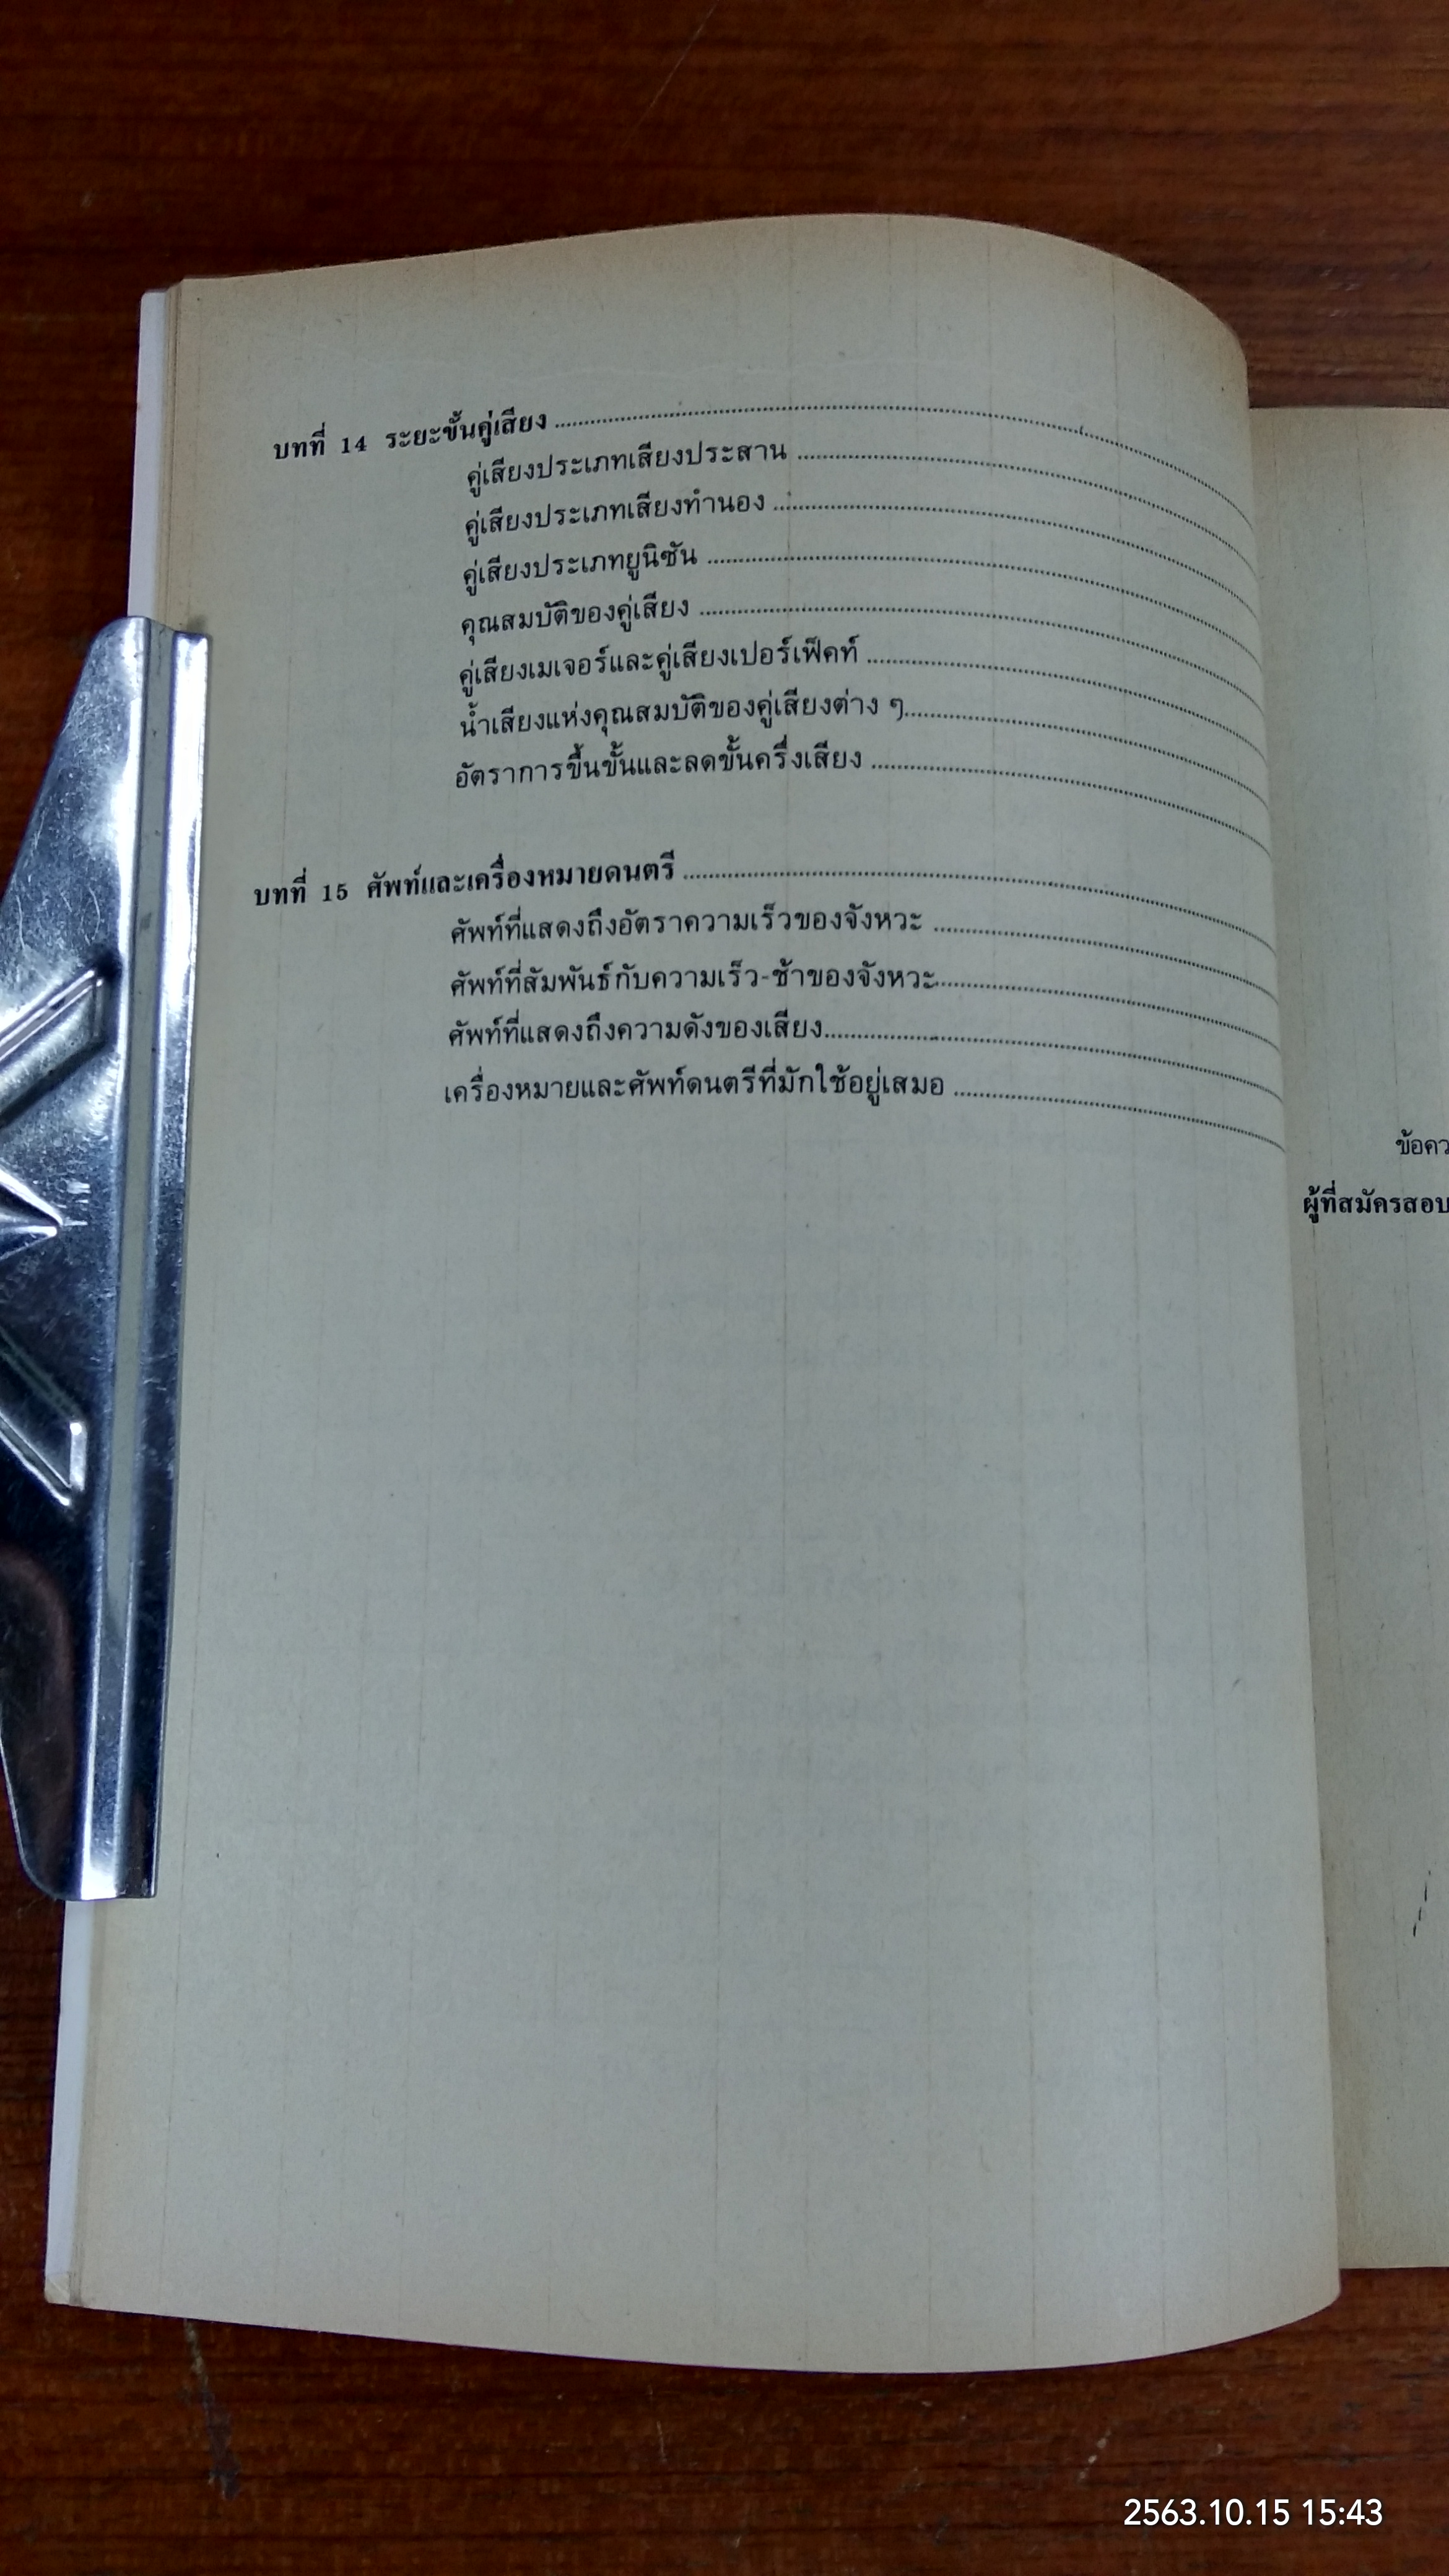 บทที่ 14 ระยะขั้นคู่เสียง
คู่เสียงประเภทเสียงประสาน
คู่เสียงประเภทเสียงทำนอง
คู่เสียงประเภทยูนิซัน
คุณสมบัติของคู่เสียง
คู่เสียงเมเจอร์และคู่เสียงเปอร์เฟ็คท์
น้ำเสียงแห่งคุณสมบัติของคู่เสียงต่าง ๆ
อัตราการขึ้นขั้นและลดขั้นครึ่งเสียง
บทที่ 15 ศัพท์และเครื่องหมายดนตรี
ศัพท์ที่แสดงถึงอัตราความเร็วของจังหวะ
ศัพท์ที่สัมพันธ์กับความเร็ว-ช้าของจังหวะ
ศัพท์ที่แสดงถึงความดังของเสียง
เครื่องหมายและศัพท์ดนตรีที่มักใช้อยู่เสมอ
ข้อคว
ผู้ที่สมัครสอบ
2563.10.15 15:43